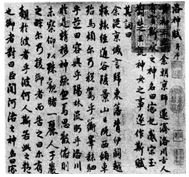 洛神賦 并序
余朝京師還濟洛川古人
有言斯水之神名曰宓妃感宋玉
對楚王神女之事遂作斯賦
其詞曰
余從京域言歸東藩背伊闕越
轘轅經通谷陵景山日既西傾車
殆馬煩爾乃稅駕乎蘅皋秣駟
乎芝田容與乎楊林流眄乎洛川
於是精移神駭忽焉思散俯則
未察仰以殊觀睹一麗人于
巖之畔乃援御者而告之曰爾有覿
於彼者乎彼何人斯若此之豔也
御者對曰臣聞河洛之神